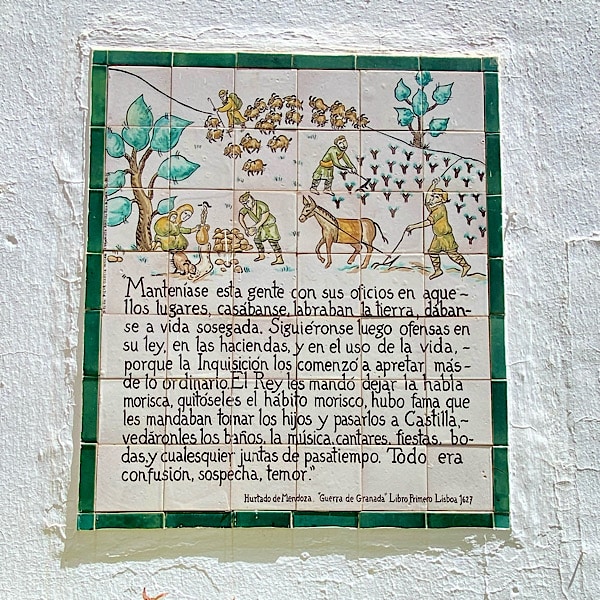 "Manteníase esta gente con sus oficios en aque~
llos lugares, casábanse, labraban la tierra, dában-
se a vida sosegada. Siguiéronse luego ofensas en
su ley, en las haciendas, y en el uso de la vida, ~
porque la Inquisición los comenzo a apretar más-
de lo ordinario. El Rey les mandó dejar la habla
morisca, quitóseles el hábito morisco, hubo fama que
les mandaban tomar los hijos y pasarlos a Castilla,~
vedáronles los baños, la música, cantares, fiestas, bo-
das, y cualesquier juntas de pasatiempo. Todo era
confusión, sospecha, temor."
Hurtado de Mendoza. "Guerra de Granada" Libro Primero Lisboa 1627